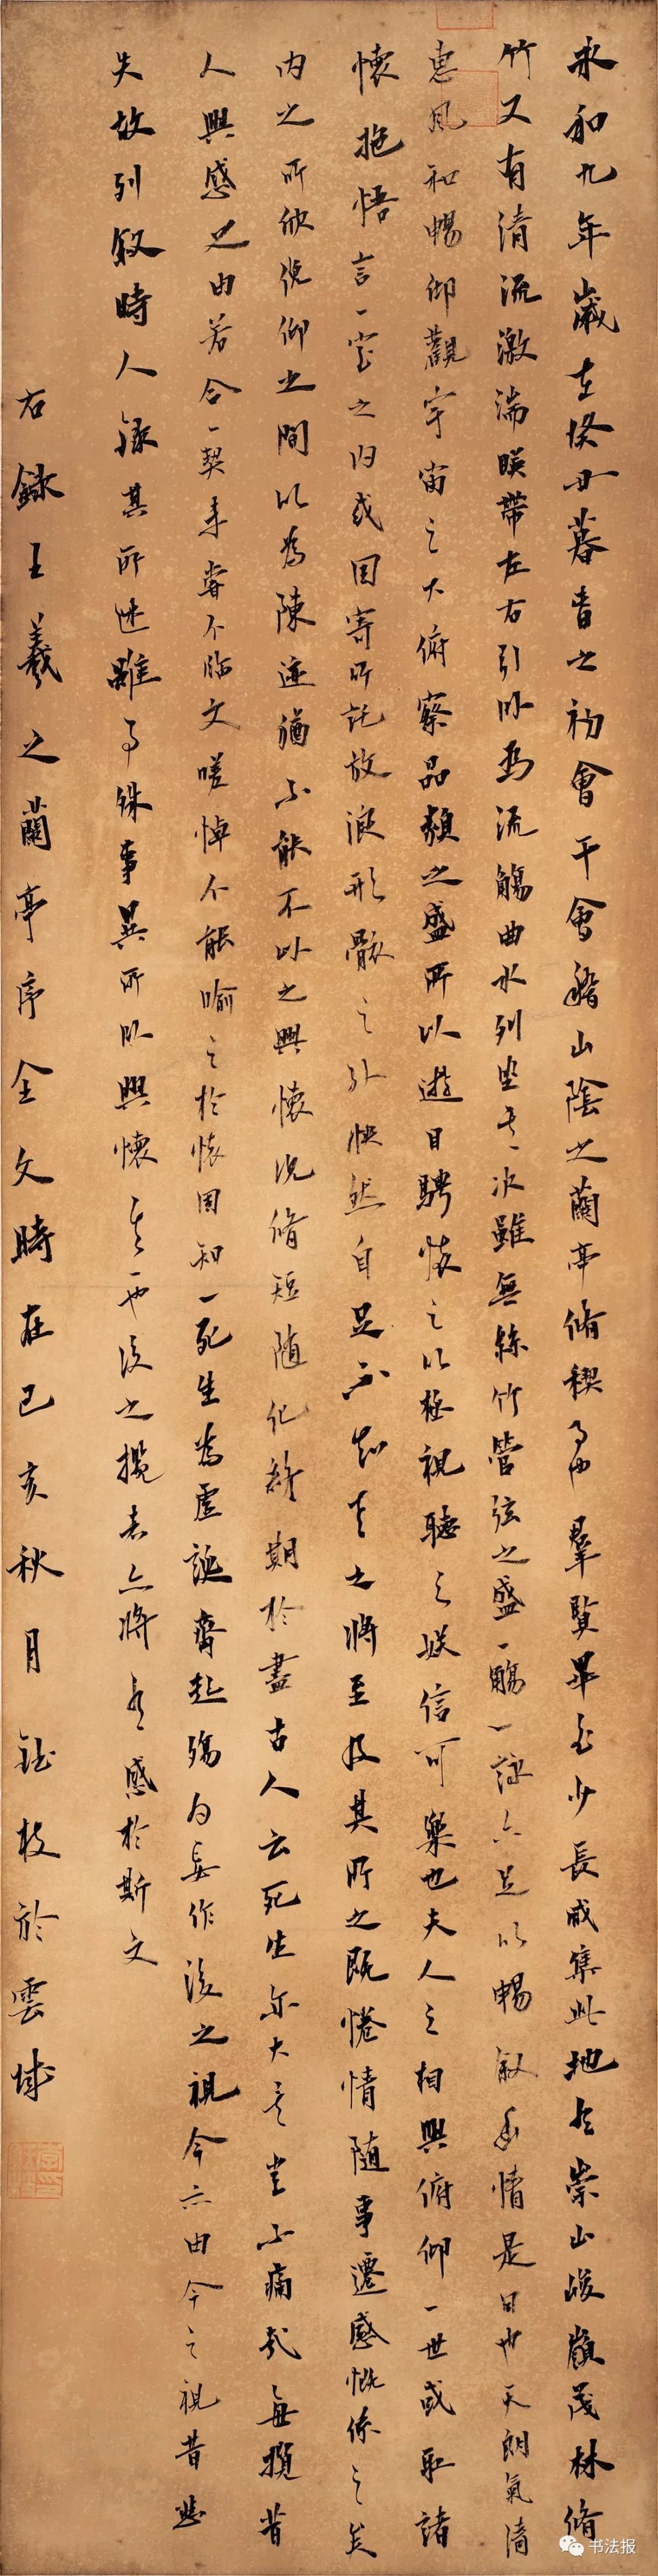 永和九年歲在癸丑暮春之初會于會稽山陰之蘭亭脩稧事也羣賢畢至少長咸集此地有崇山峻嶺茂林脩
竹又有清流激湍暎帶左右引以為流觴曲水列坐其次雖無絲竹管弦之盛一觴一詠亦足以暢敘幽情是日也天朗氣清
惠風和暢仰觀宇宙之大俯察品類之盛所以遊目騁懷足以極視聽之娛信可樂也夫人之相與俯仰一世或取諸
懷抱悟言一室之內或因寄所託放浪形骸之外快然自足不知老之將至及其所之既惓情隨事遷感慨係之矣
內之所欣俛仰之間以為陳迹猶不能不以之興懷況脩短隨化終期於盡古人云死生亦大矣豈不痛哉每攬昔
人興感之由若合一契未嘗不臨文嗟悼不能喻之於懷固知一死生為虛誕齊彭殤為妄作後之視今亦由今之視昔悲
夫故列敘時人錄其所述雖世殊事異所以興懷其一也後之攬者亦將有感於斯文
右錄王羲之蘭亭序全文時在己亥秋月鈺枝於雲城
书法报